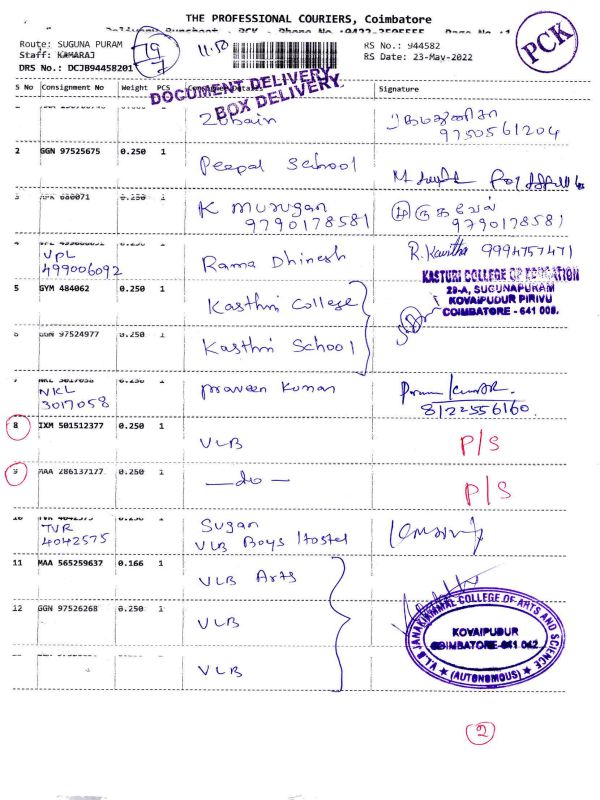 THE PROFESSIONAL COURIERS, Coimbatore
Route: SUGUNA PURAM
Staff: KAMARAJ
DRS No.: DCJB94458201
79
7
11.50
RS No.: 944582
RS Date: 23-May-2022
PCK
S No Consignment No Weight PCS Consignee Details Signature
DOCUMENT DELIVERY
BOX DELIVERY
Zubain
9750561204
2 GGN 97525675 0.250 1 Peepal School
3 680071 0.250 1 K Murugan
9790178581
முருகவேல்
9790178581
4
VPL
499006092
Rama Dhinesh
R. Kavitha 9994757471
5 GYM 484062 0.250 1 Kasthri College
KASTURI COLLEGE OF EDUCATION
29-A, SUGUNAPURAM
KOVAIPUDUR PIRIVU
COIMBATORE - 641 008.
6 GGN 97524977 0.250 1 Kasthri School
7 NKL 3017058 0.250 1
NKL
3017058
Praveen Kumar
8122556160
8 IXM 501512377 0.250 1 VLB P/S
9 MAA 286137177 0.250 1 —do— P/S
10 TVR 4042575 0.250 1
TVR
4042575
Sugan
VLB Boys Hostel
11 MAA 565259637 0.166 1 VLB Arts
12 GGN 97526268 0.250 1 VLB
VLB
V.L.B. JANAKIAMMAL COLLEGE OF ARTS AND SCIENCE
KOVAIPUDUR
COIMBATORE-641 042.
(AUTONOMOUS)
2